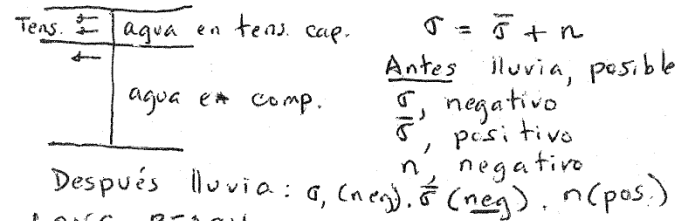 Tens. agua en tens. cap. σ = σ̄ + n
Antes lluvia, posible
agua en comp. σ, negativo
σ̄, positivo
n, negativo
Después lluvia: σ, (neg). σ̄ (neg). n (pos.)